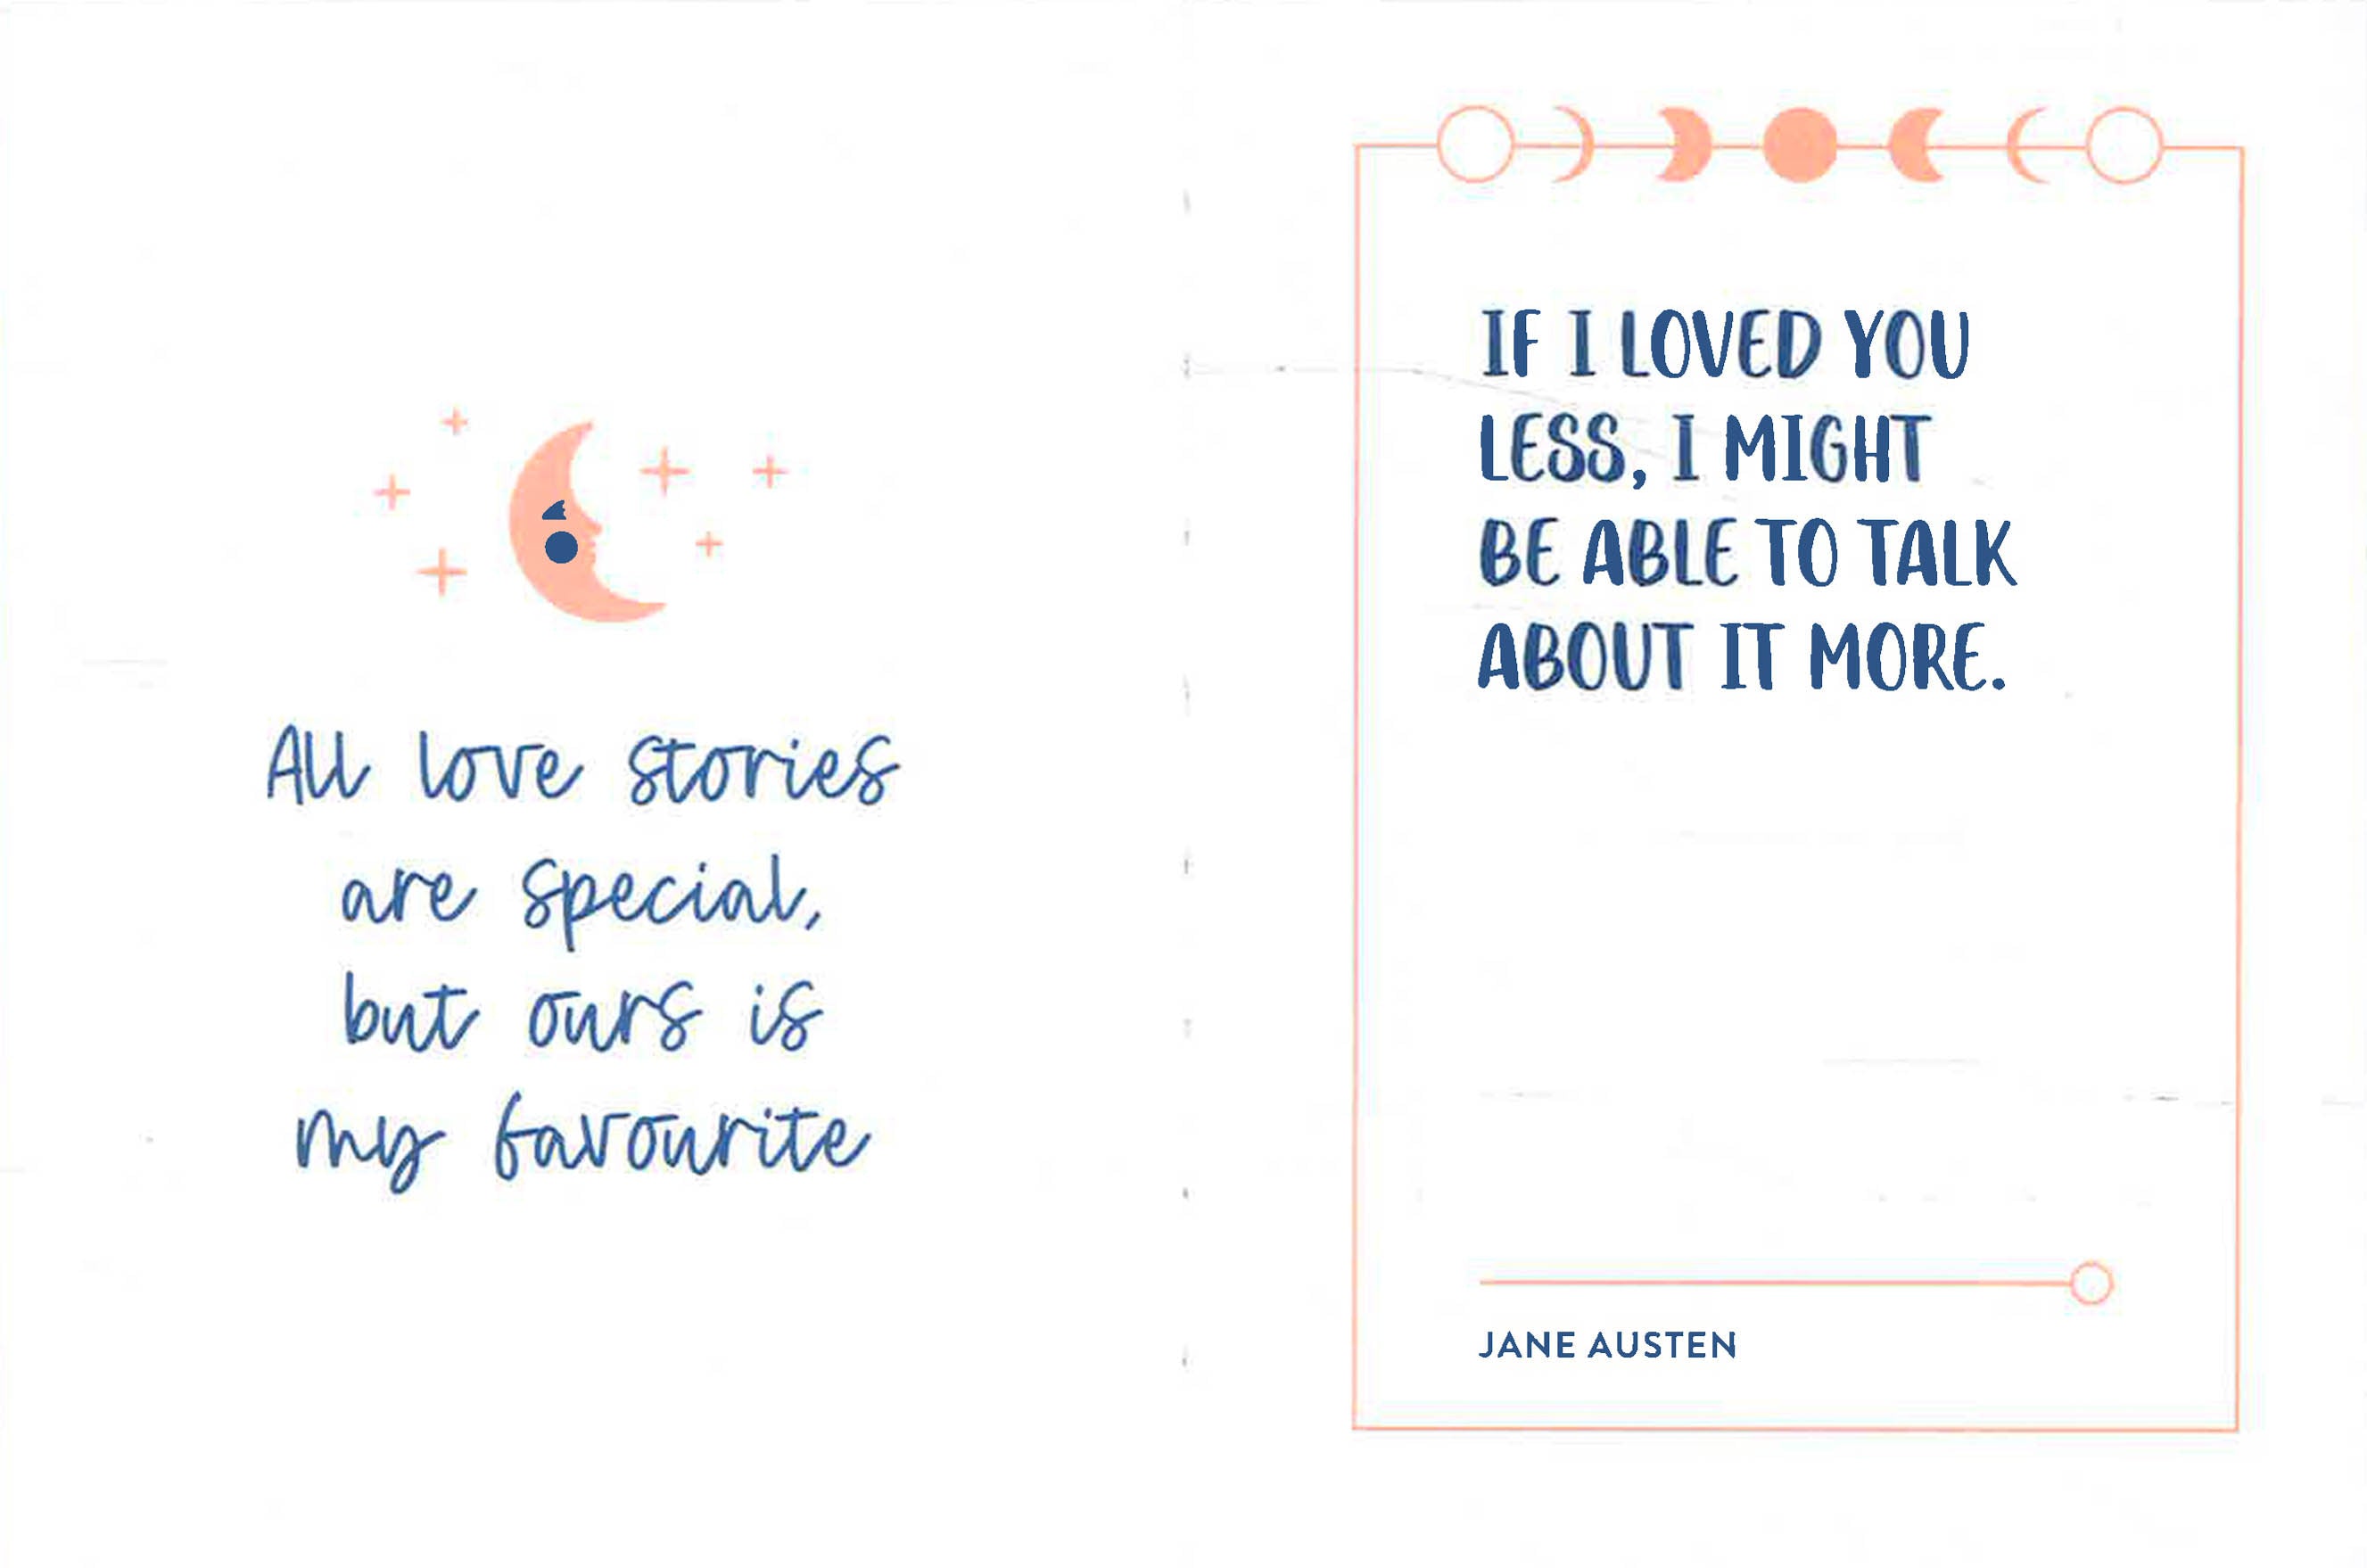 All love stories
are special,
but ours is
my favourite
IF I LOVED YOU
LESS, I MIGHT
BE ABLE TO TALK
ABOUT IT MORE.
JANE AUSTEN